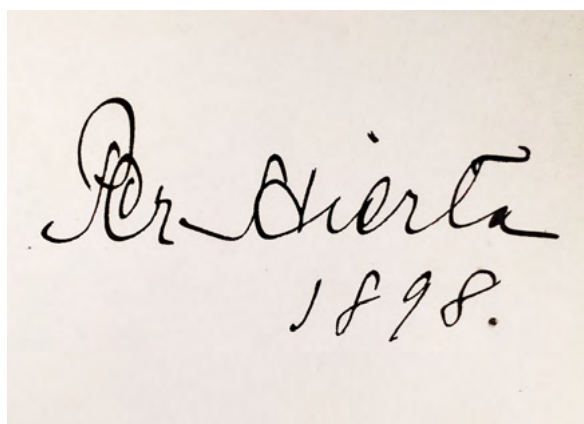 Per Hierta
1898.